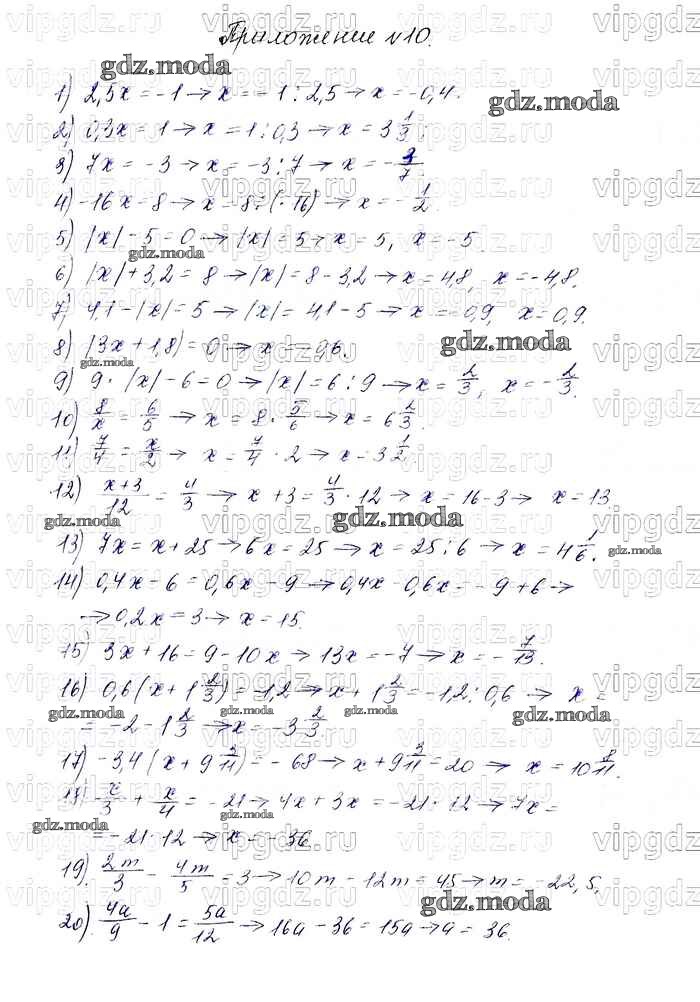 Приложение №10.
1) 2,5x = -1 → x = -1 : 2,5 → x = -0,4.
2) 0,3x = 1 → x = 1 : 0,3 → x = 3 1/3.
3) 7x = -3 → x = -3 : 7 → x = -3/7.
4) -16x = 8 → x = 8 : (-16) → x = -1/2.
5) |x| - 5 = 0 → |x| = 5 → x = 5, x = -5.
6) |x| + 3,2 = 8 → |x| = 8 - 3,2 → x = 4,8, x = -4,8.
7) 4,1 - |x| = 5 → |x| = 4,1 - 5 → x = -0,9, x = 0,9.
8) |3x + 1,8| = 0 → x = -0,6.
9) 9 · |x| - 6 = 0 → |x| = 6 : 9 → x = 2/3, x = -2/3.
10) 8/x = 6/5 → x = 8 · 5/6 → x = 6 2/3.
11) 7/4 = x/2 → x = 7/4 · 2 → x = 3 1/2.
12) (x+3)/12 = 4/3 → x + 3 = 4/3 · 12 → x = 16 - 3 → x = 13
13) 7x = x + 25 → 6x = 25 → x = 25 : 6 → x = 4 1/6.
14) 0,4x - 6 = 0,6x - 9 → 0,4x - 0,6x = -9 + 6 →
→ 0,2x = 3 → x = 15.
15) 3x + 16 = 9 - 10x → 13x = -7 → x = -7/13.
16) 0,6(x + 1 2/3) = -1,2 → x + 1 2/3 = -1,2 : 0,6 → x =
= -2 - 1 2/3 → x = -3 2/3.
17) -3,4(x + 9 3/11) = -68 → x + 9 3/11 = 20 → x = 10 8/11.
18) x/3 + x/4 = -21 → 4x + 3x = -21 · 12 → 7x =
= -21 · 12 → x = -36
19) 2m/3 - 4m/5 = 3 → 10m - 12m = 45 → m = -22,5.
20) 4a/9 - 1 = 5a/12 → 16a - 36 = 15a → a = 36.
vipgdz.ru
gdz.moda